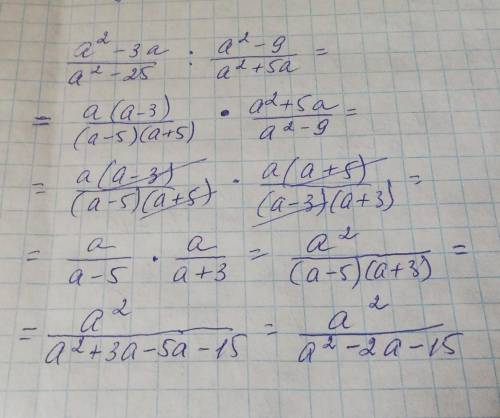 (a² - 3a)/(a² - 25) : (a² - 9)/(a² + 5a) =
= a(a-3)/((a-5)(a+5)) · (a²+5a)/(a²-9) =
= a(a-3)/((a-5)(a+5)) · a(a+5)/((a-3)(a+3)) =
= a/(a-5) · a/(a+3) = a²/((a-5)(a+3)) =
= a²/(a²+3a-5a-15) = a²/(a²-2a-15)